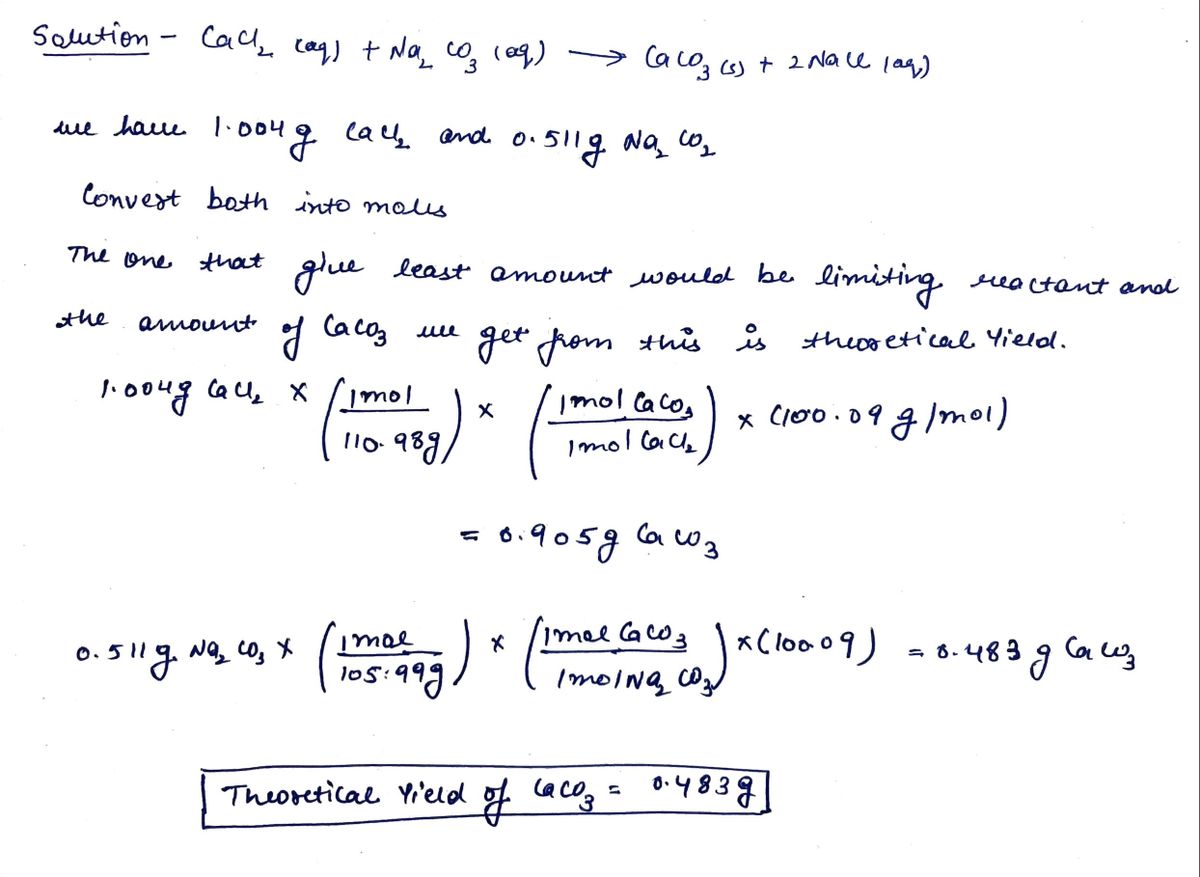 Solution - CaCl₂ (aq) + Na₂ CO₃ (aq) → CaCO₃ (s) + 2 NaCl (aq)
we have 1.004 g CaCl₂ and 0.511 g Na₂ CO₂
Convert both into moles
The one that give least amount would be limiting reactant and
the amount of CaCO₃ we get from this is theoretical Yield.
1.004g CaCl₂ × (1mol / 110.98g) × (1mol CaCO₃ / 1mol CaCl₂) × (100.09 g/mol)
= 0.905g CaCO₃
0.511g Na₂ CO₃ × (1mol / 105.99g) × (1mol CaCO₃ / 1mol Na₂ CO₃) × (100.09) = 0.483 g CaCO₃
Theoretical Yield of CaCO₃ = 0.483g